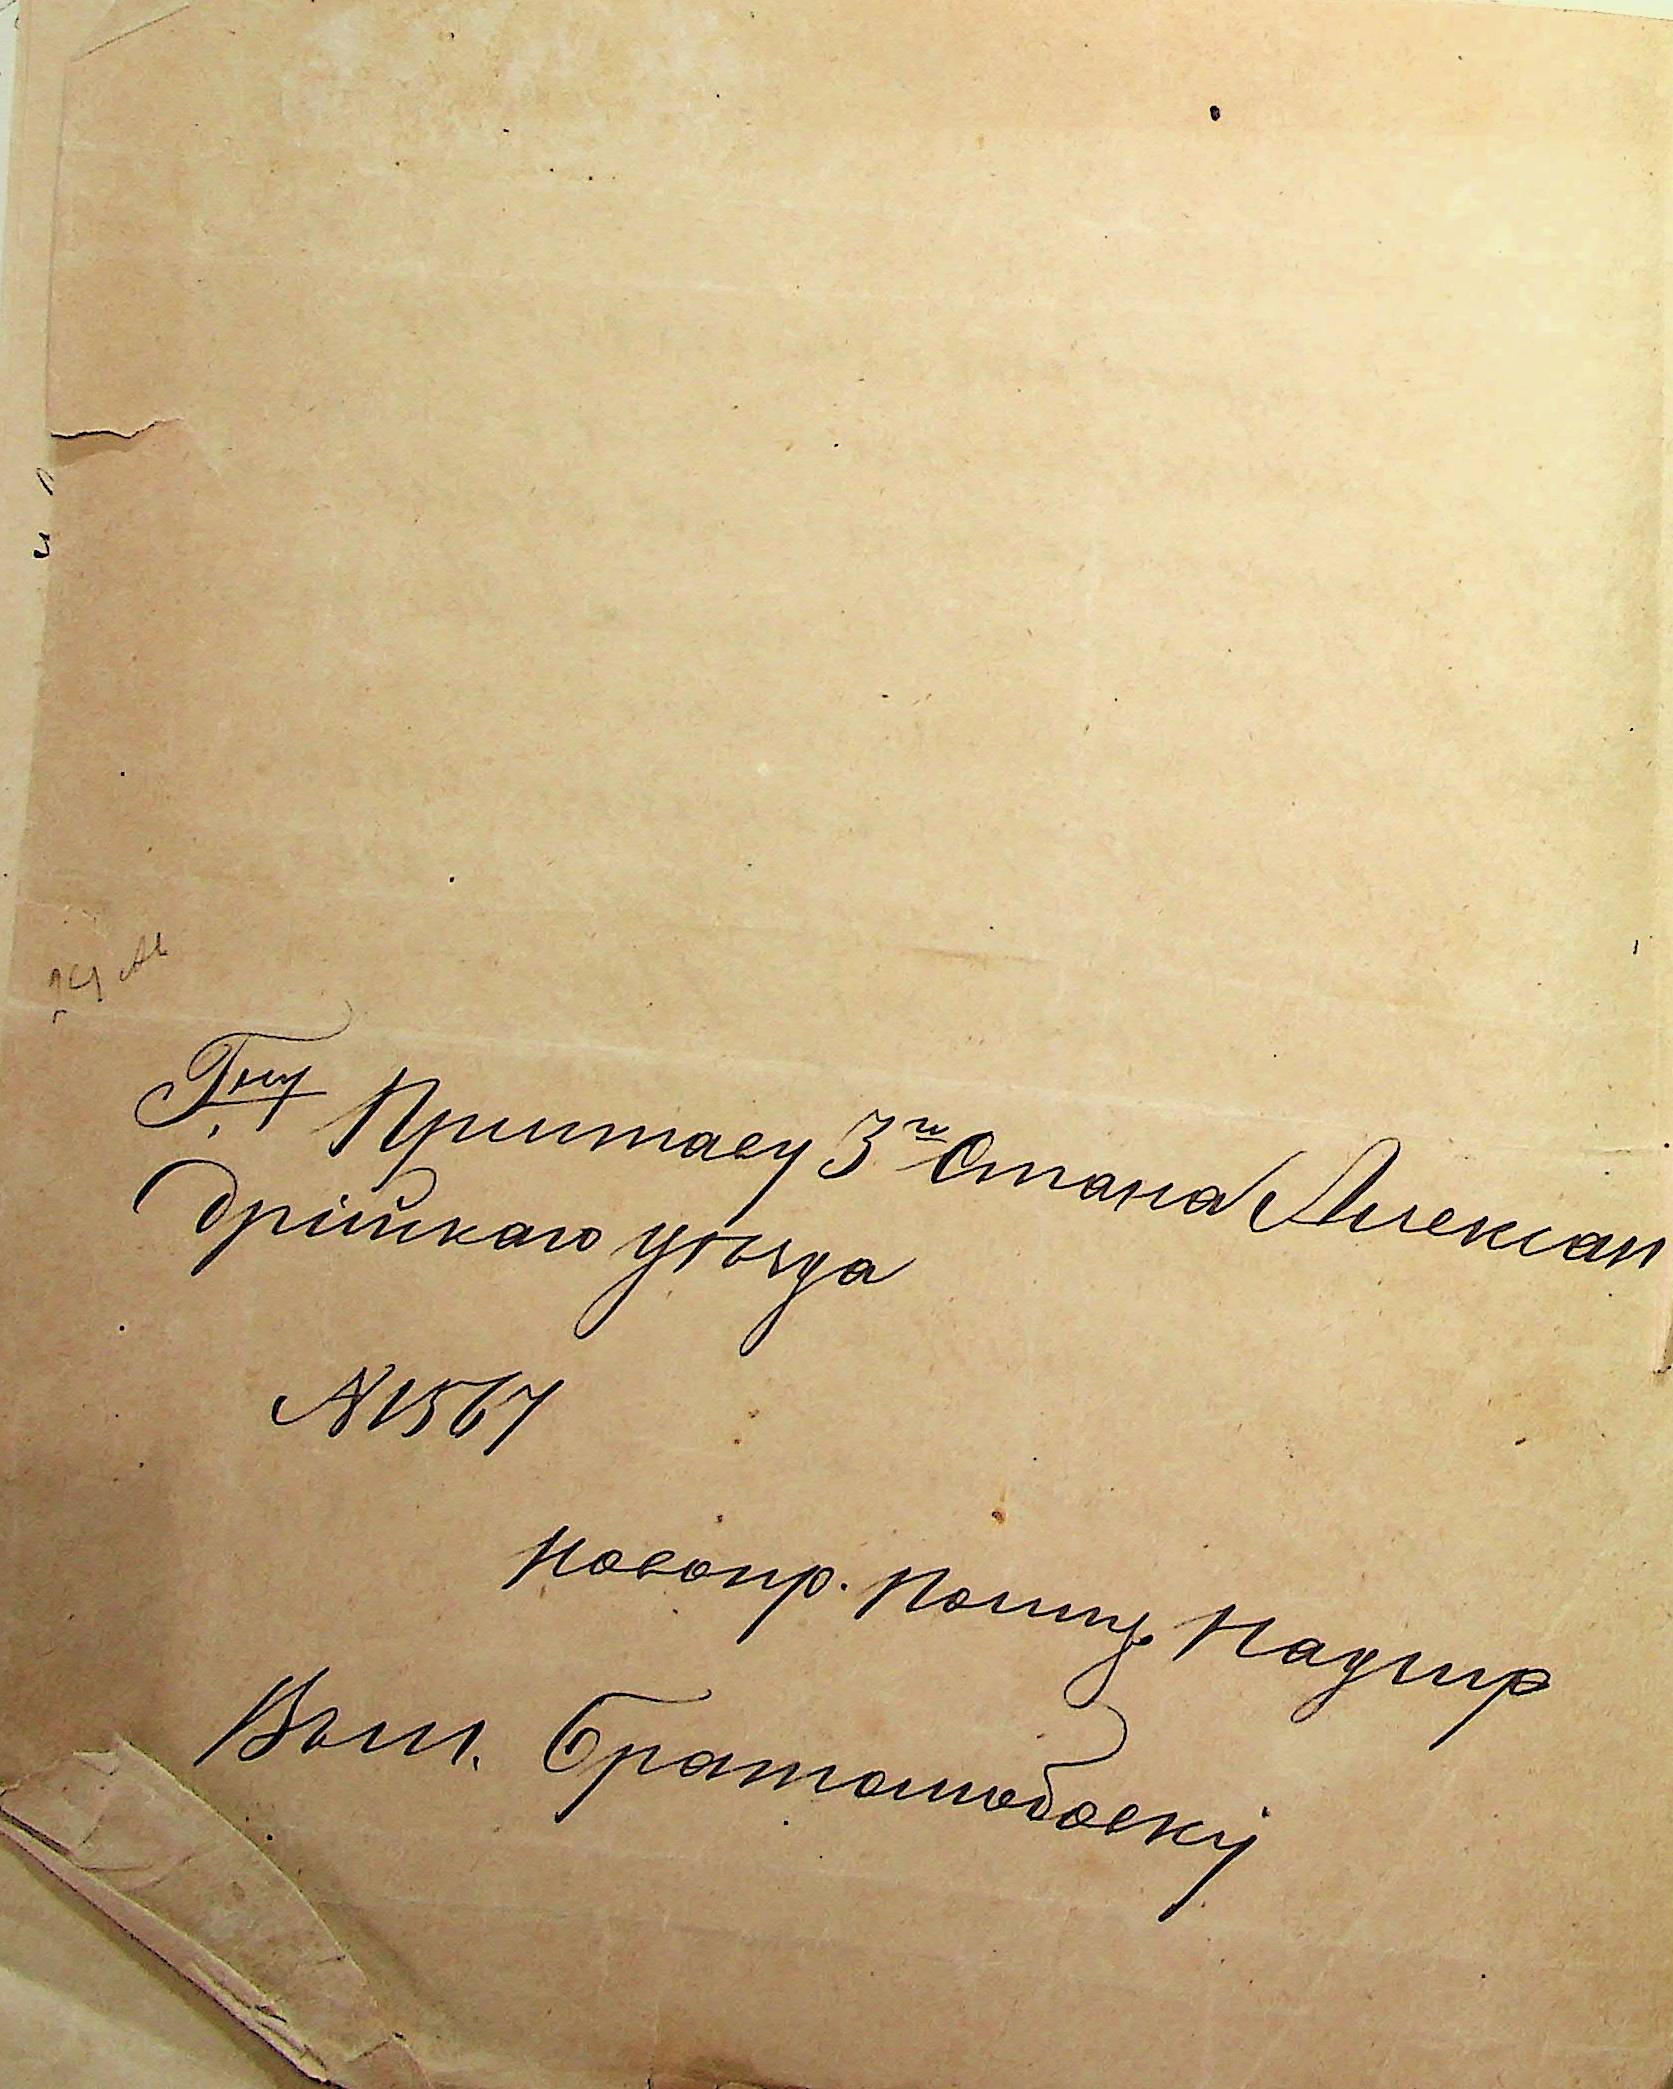 Гну Приставу 3го Стана Алексан
дрійскаго уѣзда
№1567
Новопр. Полиц. Надзир
Выш. Братолюбовскій